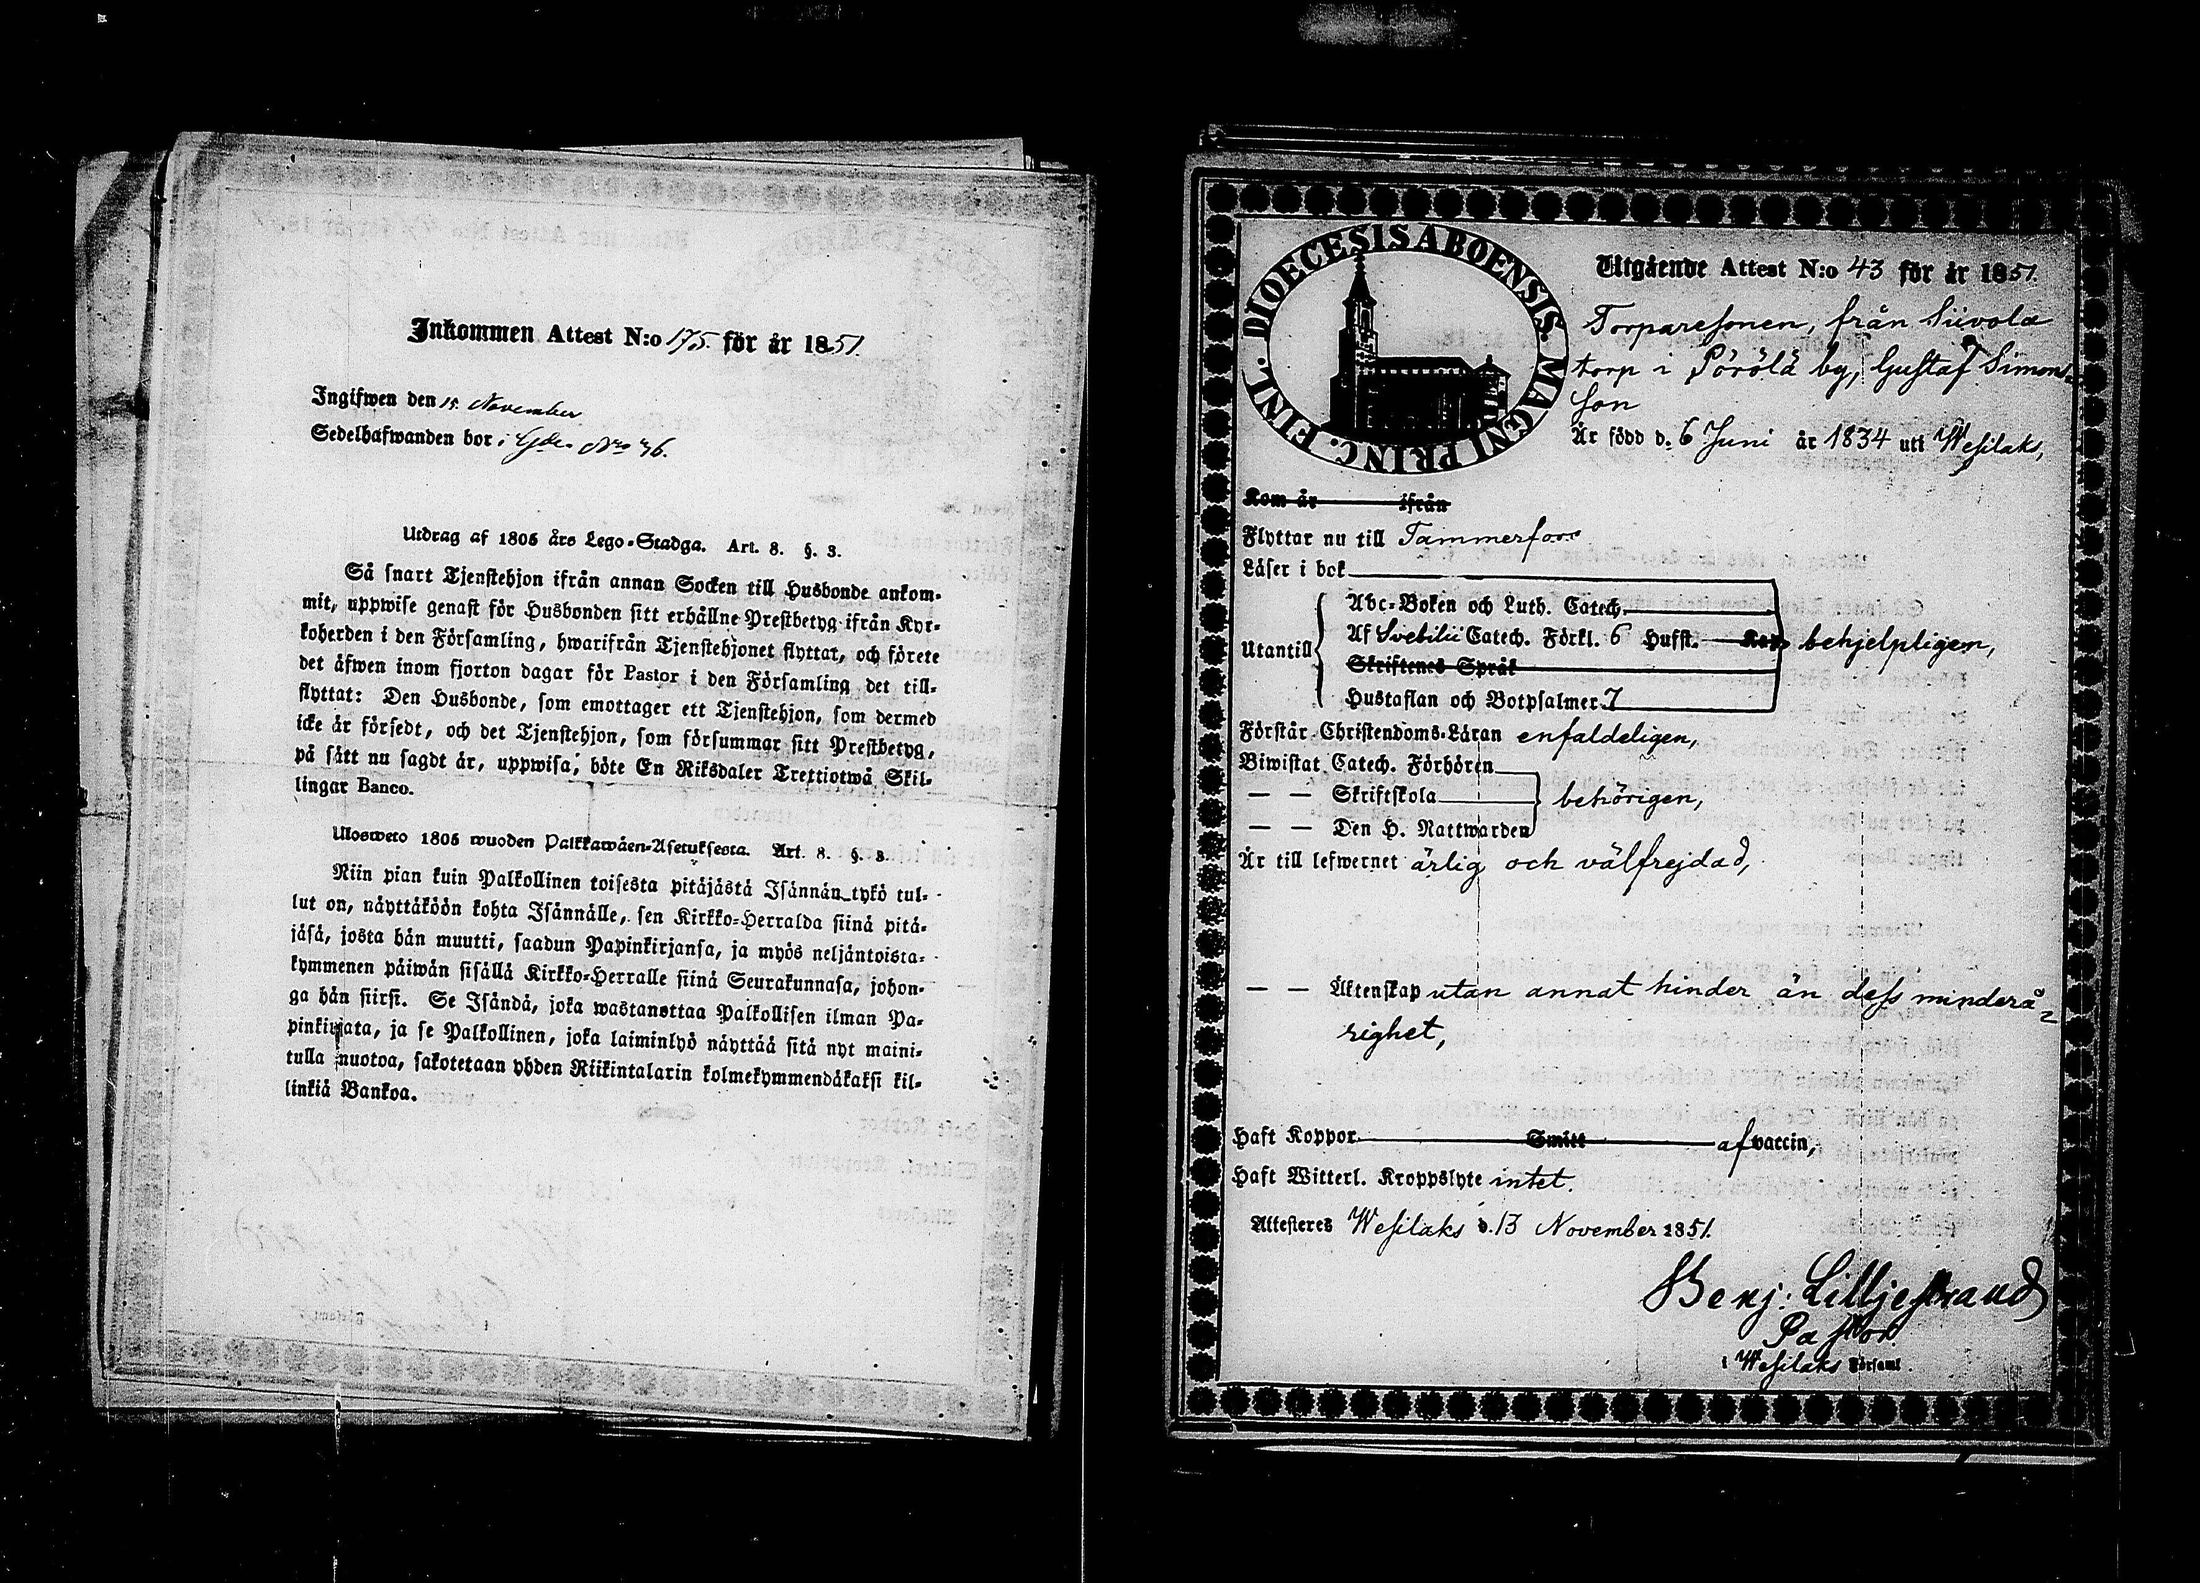 Inkommen Attest N:o 175. för år 1851.
Ingifwen den 15. November
Sedelhafwanden bor i Gde. Nro 36.
Utdrag af 1805 års Lego-Stadga. Art. 8. §. 3.
Så snart Tjenstehjon ifrån annan Socken till Husbonde ankom-
mit, uppwise genast för Husbonden sitt erhållne Prestbetyg ifrån Kyr-
koherden i den Församling, hwarifrån Tjenstehjonet flyttat, och förete
det äfwen inom fjorton dagar för Pastor i den Församling det till-
flyttat: Den Husbonde, som emottager ett Tjenstehjon, som dermed
icke är försedt, och det Tjenstehjon, som försummar sitt Prestbetyg,
på sätt nu sagdt är, uppwisa, böte En Riksdaler Trettiotwå Skil-
lingar Banco.
Ulosweto 1805 wuoden Palkkawäen-Asetuksesta. Art. 8. §. 3.
Niin pian kuin Palkollinen toisesta pitäjästä Isännän tykö tul-
lut on, näyttäköön kohta Isännälle, sen Kirkko-Herralda siinä pitä-
jäsä, josta hän muutti, saadun Papinkirjansa, ja myös neljäntoista-
kymmenen päiwän sisällä Kirkko-Herralle siinä Seurakunnasa, johon-
ga hän siirsi. Se Isändä, joka wastanottaa Palkollisen ilman Pa-
pinkirjata, ja se Palkollinen, joka laiminlyö näyttää sitä nyt maini-
tulla muotoa, sakotetaan yhden Riikintalarin kolmekymmendäkaksi kil-
linkiä Bankoa.
DIOECESIS ABOENSIS. MAGNI PRINC. FINL.
Utgående Attest N:o 43 för år 1851.
Torparesonen, från Siivola
torp i Pörölä by, Gustaf Simons-
son
Är född d. 6 Juni år 1834 uti Wesilaks,
Kom år ifrån
Flyttar nu till Tammerfors
Läser i bok
Abc-Boken och Luth. Catech.
Utantill Af Svebilii Catech. Förkl. 6 Hufst. Kap. behjelpligen,
Skriftenes Språk
Hustaflan och Botpsalmer 7
Förstår Christendoms-Läran enfaldeligen,
Biwistat Catech. Förhören
— — Skriftskola behörigen,
— — Den H. Nattwarden
Är till lefwernet ärlig och välfrejdad,
— — Äktenskap utan annat hinder än dess minderå-
righet,
Haft Koppor Smitt af vaccin,
Haft Witterl. Kroppslyte intet.
Attesteres Wesilaks d. 13 November 1851.
Benj: Lilljestrand
Pastor
i Wesilaks Församl.